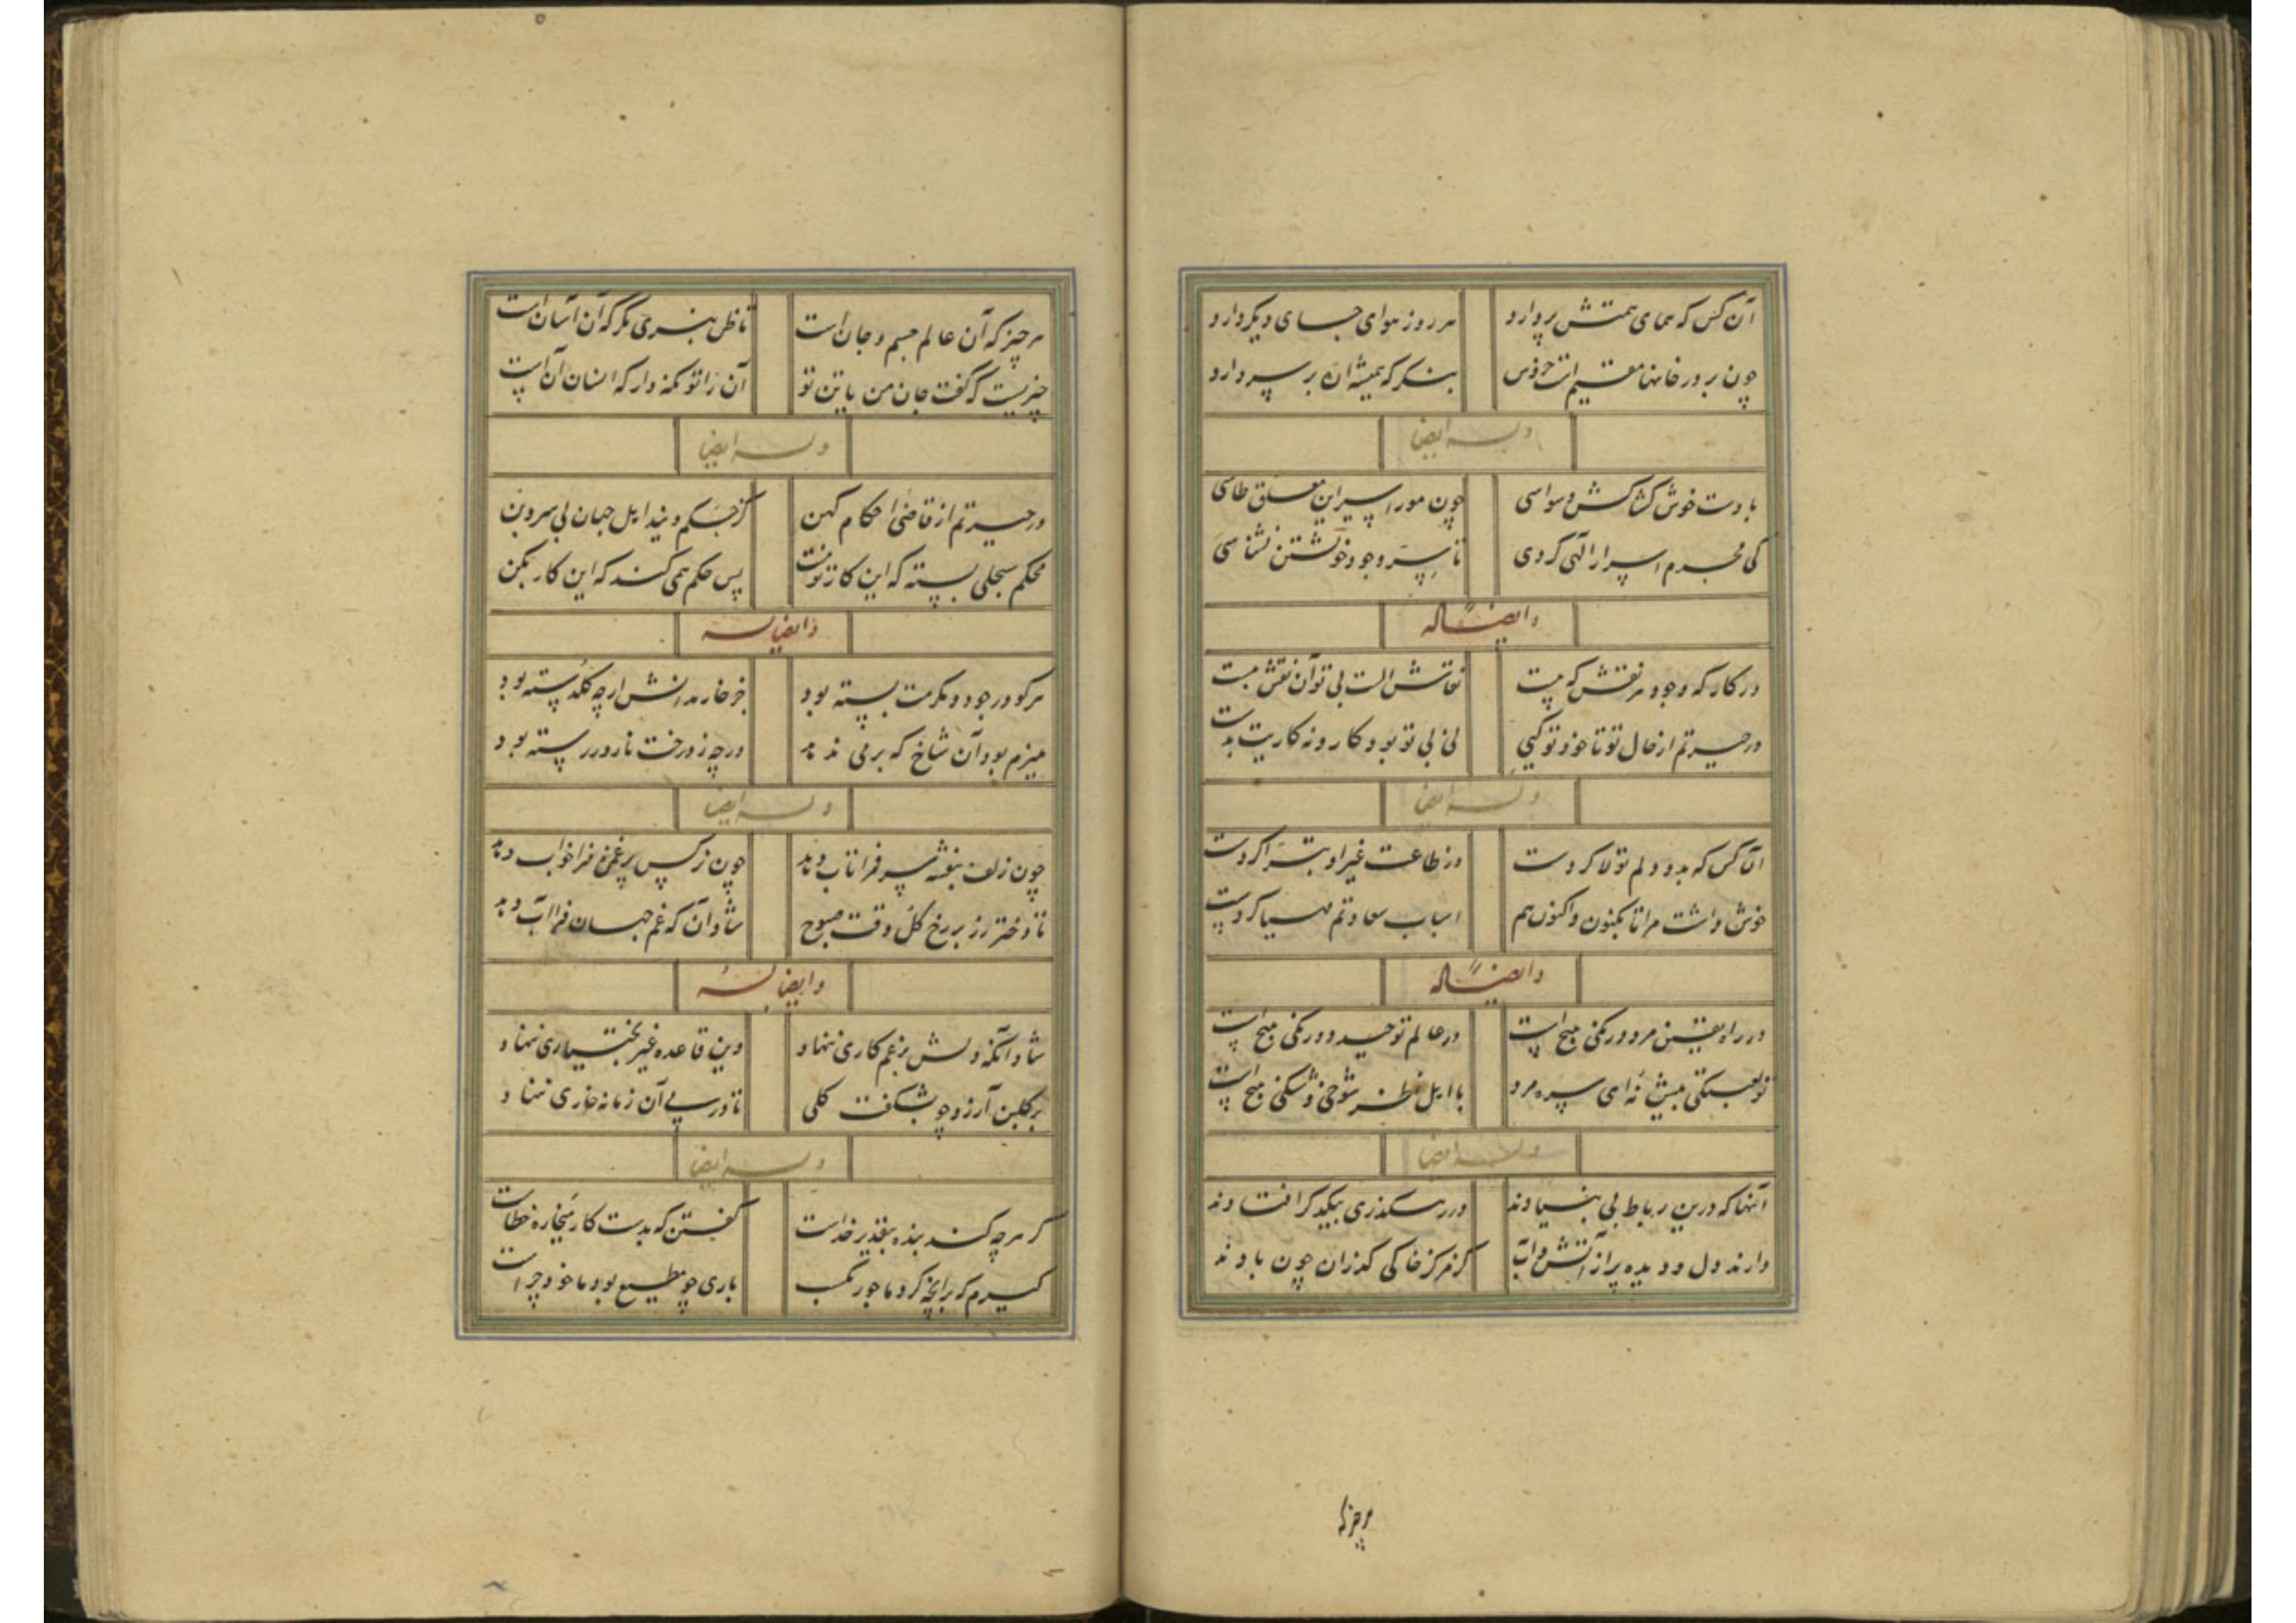 آن کس که همای همتش پر دارد هر روز هوای جای دیگر دارد
چون بر در خانها مقیم است خروس بنگر که همیشه اره بر سر دارد
وله ایضا
با دست خوش کشاکش وسواسی چون مور اسیر این معلق طاسی
کی محرم اسرار الهی گردی تا سر وجود خویشتن نشناسی
وایضا له
در کارگه وجود هر نقش که هست نقاش الست بی تو آن نقش ببست
در حیرتم از حال تو تا خود تو کیی نی بی تو بود کار و نه کاریت بدست
وله ایضا
آنکس که بدو دلم تولا کردست وز طاعت غیر او تبرا کردست
خوش داشت مرا تا بکنون واکنون هم اسباب سعادتم مهیا کردست
وایضا له
در راه یقین مرد و رکنی هیچ است در عالم توحید دورنگی هیچ است
تو لعبتکی بیش نه ای سره مرد با اهل نظر شوخی و شنگی هیچ است
وله ایضا
آنها که درین رباط بی بنیادند در رهگذری بیکدگر افتادند
دارند دل و دیده پر از آتش و آب کز مرکز خاکی گذران چون بادند
هر چیز که
هر چیز که آن عالم جسم و جان است تا ظن نبری مگر که آن آسان است
چیزیست که گفت جان من با تن تو آن را تو نگه دار که انسان آن است
وله ایضا
در حیرتم از قاضی احکام کهن کز حکم ویند اهل جهان بی سر و بن
محکم سجلی بسته که این کار ز تست پس حکم همی کند که این کار بکن
وایضا له
هر کو در جود و مکرمت بسته بود جز خار مدانش ارچه گلدسته بود
هیزم بود آن شاخ که بر می ندهد ور چه ز درخت نار ور رسته بود
وله ایضا
چون زلف بنفشه سر فرا تاب دهد چون نرگس پر غمزه فرا خواب دهد
تا دختر رز بر رخ گل وقت صبوح شاد آن که غم جهان فرا آب دهد
وایضا له
شاد آنکه دلش بر غم کاری ننهاد وین قاعده غیر بختیاری ننهاد
بر گلبن آرزو چو بشکفت گلی تا در پی آن زمانه خاری ننهاد
وله ایضا
گر هر چه کند بنده بتقدیر خداست گفتن که بدست کار بیچاره خطاست
گیرم که برانچه کرد ماجور نگشت باری چو مطیع بود ماخوذ چراست